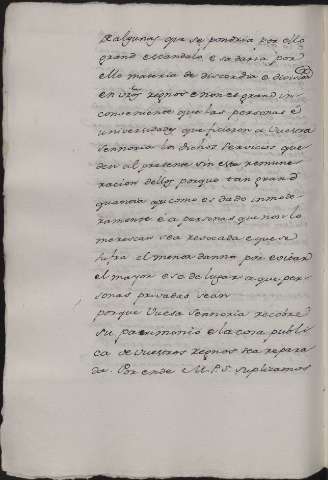 de algunas que se pondria por ello
grand escandalo e se daria por
ello materia de discordia e division
en vros regnos e non es grand in-
conveniente que las personas e
universidades que ficieron a Vuestra
Sennoria los dichos servicios que
den al presente sin esta remune
racion dellos porque tan grand
quantia asi como es dado inmode
ramente e a personas que non lo
merescian sea revocada e que se
sufra el menor danno por evitar
el mayor e se de lugar a que per-
sonas privadas sean
porque Vuesa Sennoria recobre
su patrimonio e la cosa publi
ca de vuestros regnos sea repara
da. Por ende M. P. S. suplicamos